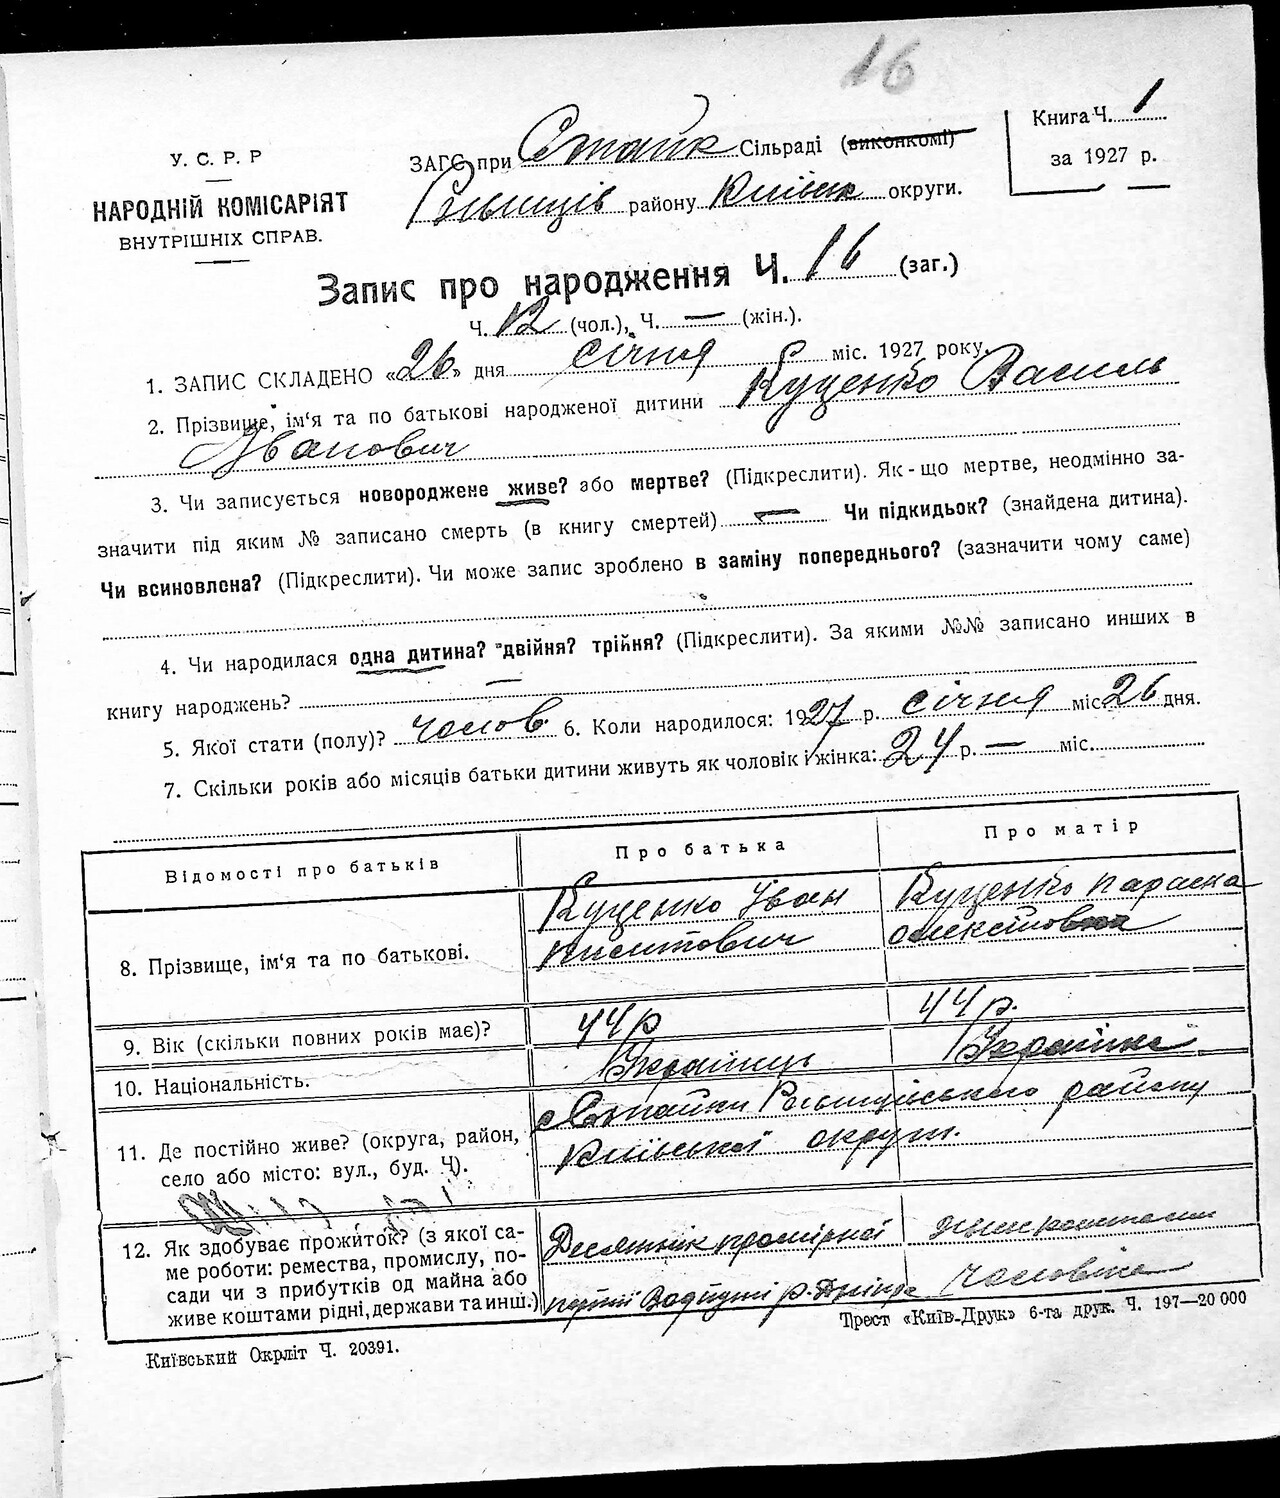 16
У. С. Р. Р
НАРОДНІЙ КОМІСАРІЯТ
ВНУТРІШНІХ СПРАВ.
ЗАГС при Стайк Сільраді (виконкомі)
Ржищів району Київськ округи.
Книга Ч. 1
за 1927 р.
Запис про народження Ч. 16 (заг.)
Ч. 12 (чол.), Ч. — (жін.).
1. ЗАПИС СКЛАДЕНО «26» дня січня міс. 1927 року.
2. Прізвище, ім'я та по батькові народженої дитини Куценко Василь
Іванович
3. Чи записується новороджене живе? або мертве? (Підкреслити). Як-що мертве, неодмінно за-
значити під яким № записано смерть (в книгу смертей) — Чи підкидьок? (знайдена дитина).
Чи всиновлена? (Підкреслити). Чи може запис зроблено в заміну попереднього? (зазначити чому саме)
4. Чи народилася одна дитина? двійня? трійня? (Підкреслити). За якими №№ записано инших в
книгу народжень? —
5. Якої стати (полу)? чолов. 6. Коли народилося: 1927 р. січня міс 26 дня.
7. Скільки років або місяців батьки дитини живуть як чоловік і жінка: 24 р. — міс.
Відомості про батьків
Про батька
Про матір
8. Прізвище, ім'я та по батькові.
Куценко Іван
Куценко Параска
9. Вік (скільки повних років має)?
44 р
44 р.
10. Національність.
Українець
Українка
11. Де постійно живе? (округа, район,
село або місто: вул., буд. Ч).
с Стайки Ржищівського району
Київської округи.
12. Як здобуває прожиток? (з якої са-
ме роботи: ремества, промислу, по-
сади чи з прибутків од майна або
живе коштами рідні, держави та инш.)
Десятник промірної
партії р. Дніпра
живе коштами
чоловіка
Київський Окрліт Ч. 20391.
Трест «Київ-Друк» 6-та друк. Ч. 197—20 000